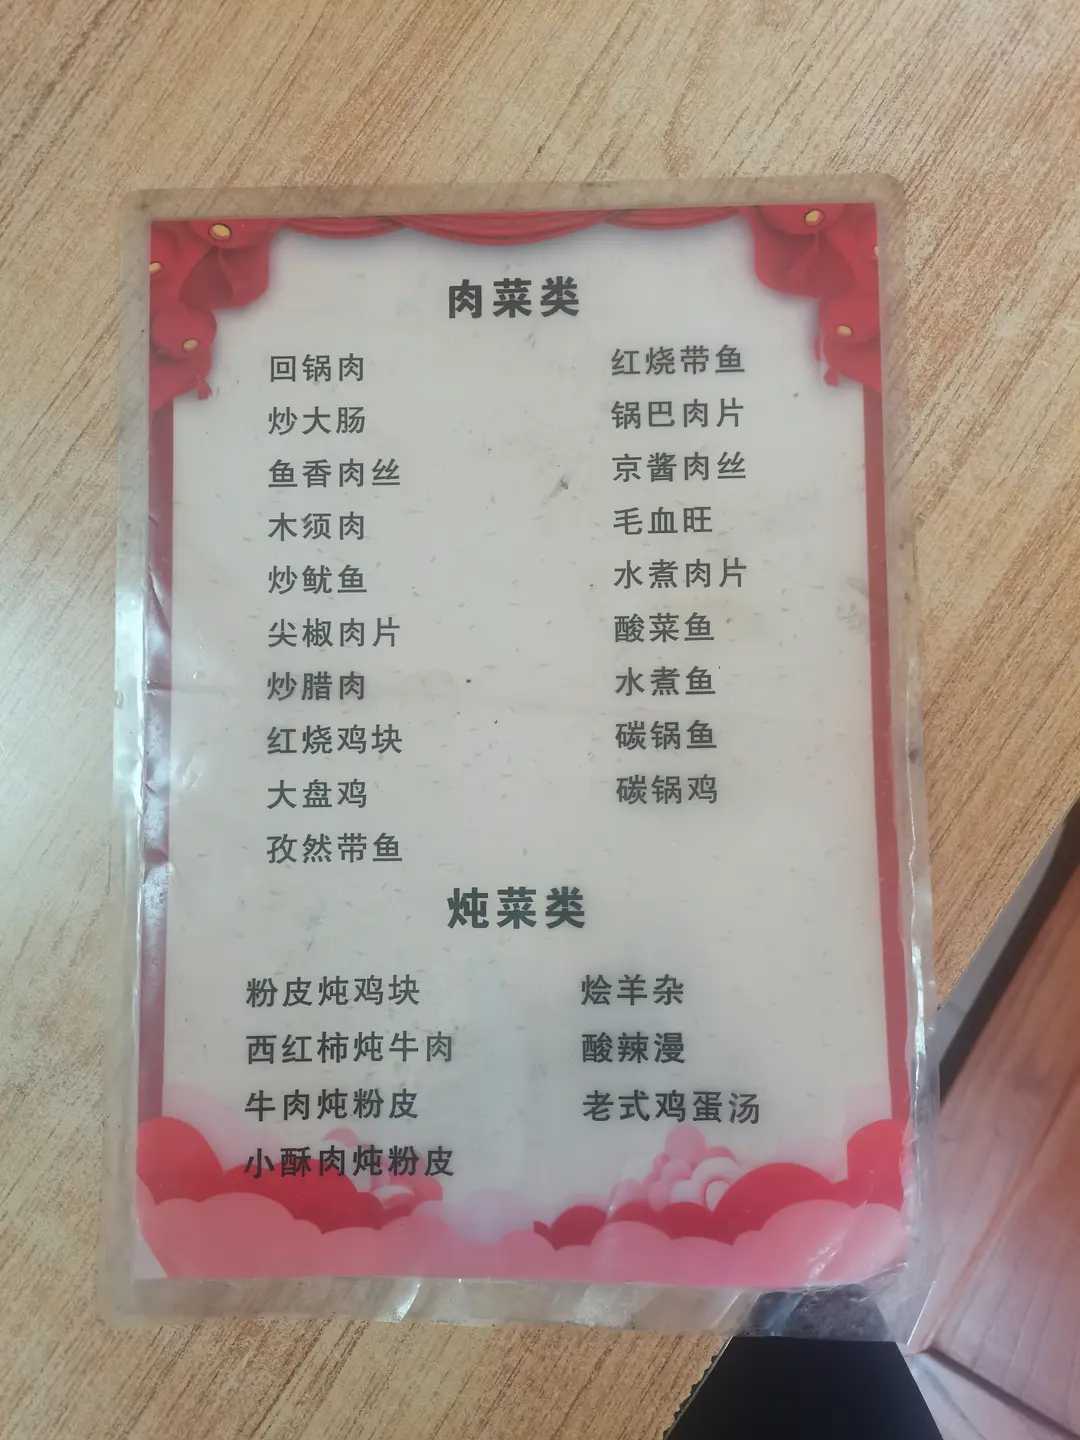 肉菜类
回锅肉
炒大肠
鱼香肉丝
木须肉
炒鱿鱼
尖椒肉片
炒腊肉
红烧鸡块
大盘鸡
孜然带鱼
红烧带鱼
锅巴肉片
京酱肉丝
毛血旺
水煮肉片
酸菜鱼
水煮鱼
碳锅鱼
碳锅鸡
炖菜类
粉皮炖鸡块
西红柿炖牛肉
牛肉炖粉皮
小酥肉炖粉皮
烩羊杂
酸辣漫
老式鸡蛋汤